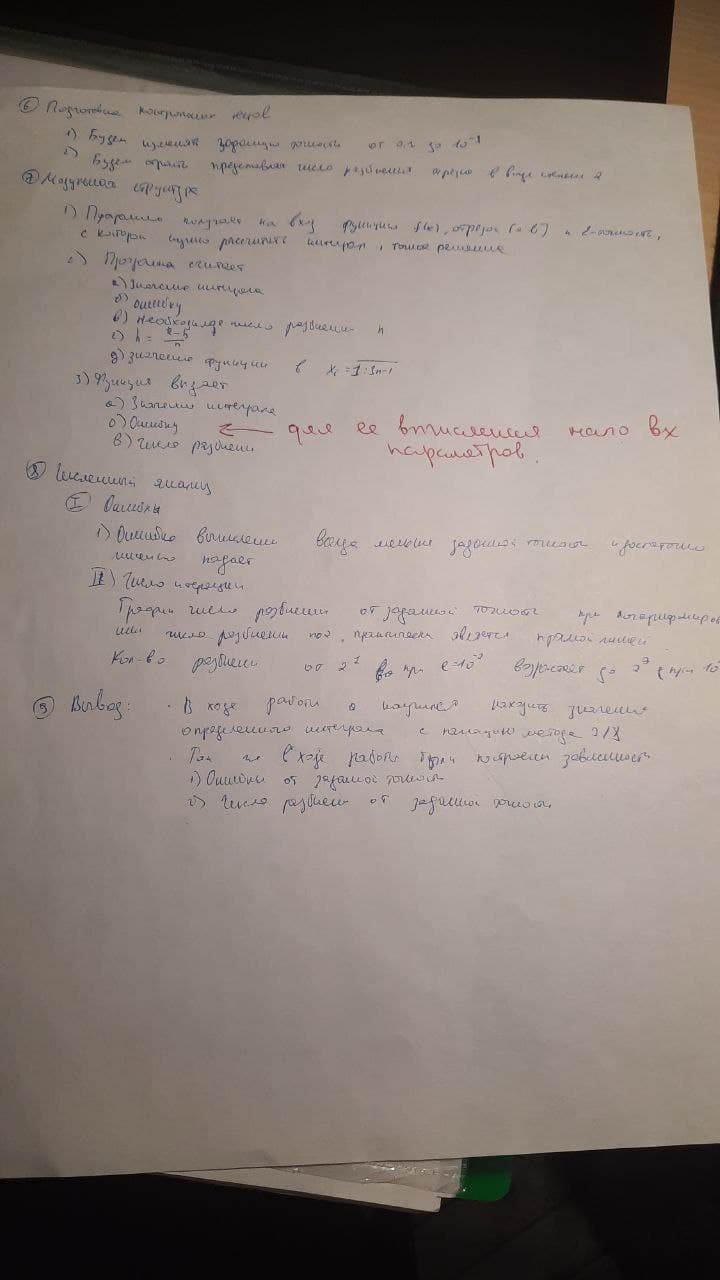 ⑥ Подготовка контрольных тестов
1) Будем изменять заданную точность от 0.1 до
2) Будем строить представляя число разбиений отрезка в виде степени 2
⑦ Модульная структура
1) Программа получает на вход функцию f(x), отрезок [a b] и ε-точность,
с которой нужно рассчитать интеграл, точное решение
2) Программа считает
а) Значение интеграла
б) ошибку
в) необходимое число разбиений n
г) h =
д) значение функции в
3) Функция выдает
а) Значение интеграла
б) Ошибку ← для ее вычисления мало вх
параметров.
в) Число разбиений
⑧ Численный анализ
I Ошибки
1) Ошибка вычислений всегда меньше заданной точности и достаточно
падает
II) Число итераций
График числа разбиений от заданной точности при логарифмиров
числа разбиений по 2, практически является прямой линией
Кол-во разбиений от при возрастает до при
⑨ Вывод: • В ходе работы я научился находить значения
определенного интеграла с помощью метода 3/8
• Так же в ходе работы были построены зависимости
1) Ошибки от заданной точности
2) Числа разбиений от заданной точности